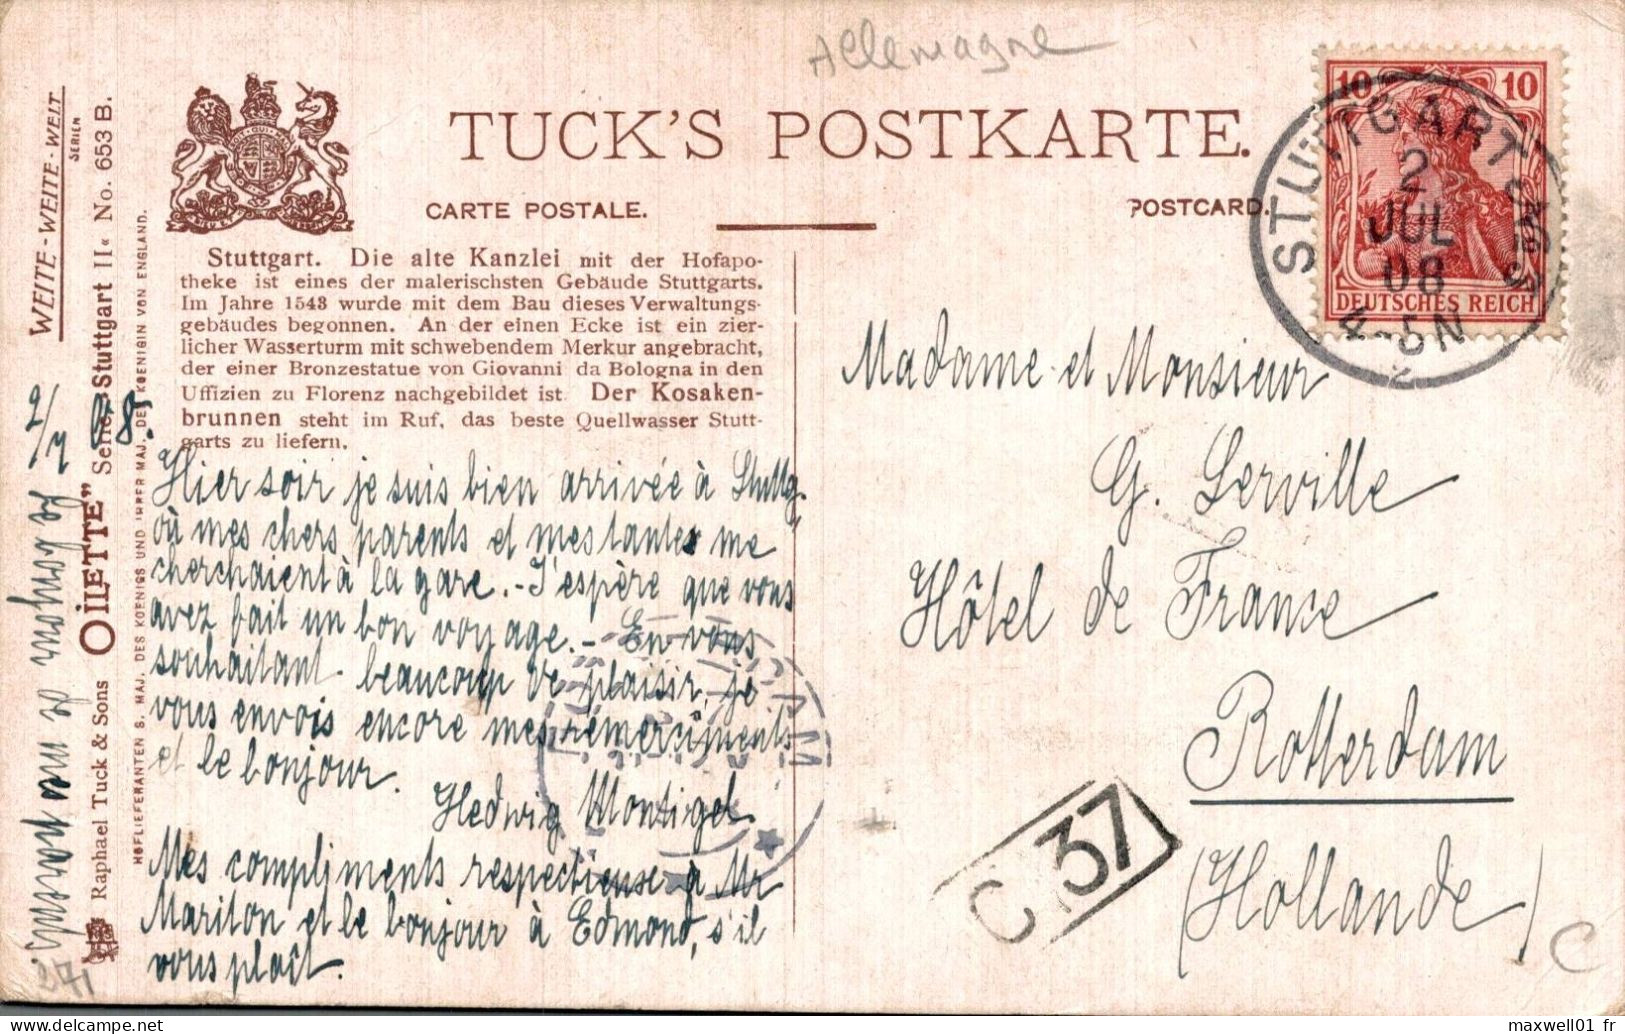 Allemagne
TUCK'S POSTKARTE.
CARTE POSTALE.
POSTCARD.
Stuttgart. Die alte Kanzlei mit der Hofapo-
theke ist eines der malerischsten Gebäude Stuttgarts.
Im Jahre 1543 wurde mit dem Bau dieses Verwaltungs-
gebäudes begonnen. An der einen Ecke ist ein zier-
licher Wasserturm mit schwebendem Merkur angebracht,
der einer Bronzestatue von Giovanni da Bologna in den
Uffizien zu Florenz nachgebildet ist. Der Kosaken-
brunnen steht im Ruf, das beste Quellwasser Stutt-
garts zu liefern.
WEITE-WEITE-WELT
SERIEN
Raphael Tuck & Sons "OILETTE" Serie »Stuttgart II« No. 653 B.
HOFLIEFERANTEN S. MAJ. DES KOENIGS UND IHRER MAJ. DER KOENIGIN VON ENGLAND.
2/7 08.
Hier soir je suis bien arrivée à Stuttg.
où mes chers parents et mes tantes me
cherchaient à la gare. - J'espère que vous
avez fait un bon voyage. - En vous
souhaitant beaucoup de plaisir, je
vous envois encore mes remerciments
et le bonjour.
Hedwig Montigel.
Mes compliments respectieuse à Mr
Mariton et le bonjour à Edmond, s'il
vous plaît.
Madame et Monsieur
G. Serville
Hôtel de France
Rotterdam
(Hollande)
10 10
DEUTSCHES REICH
STUTTGART
2
JUL
08
4-5N
2
C 37
C
271
maxwell01 fr